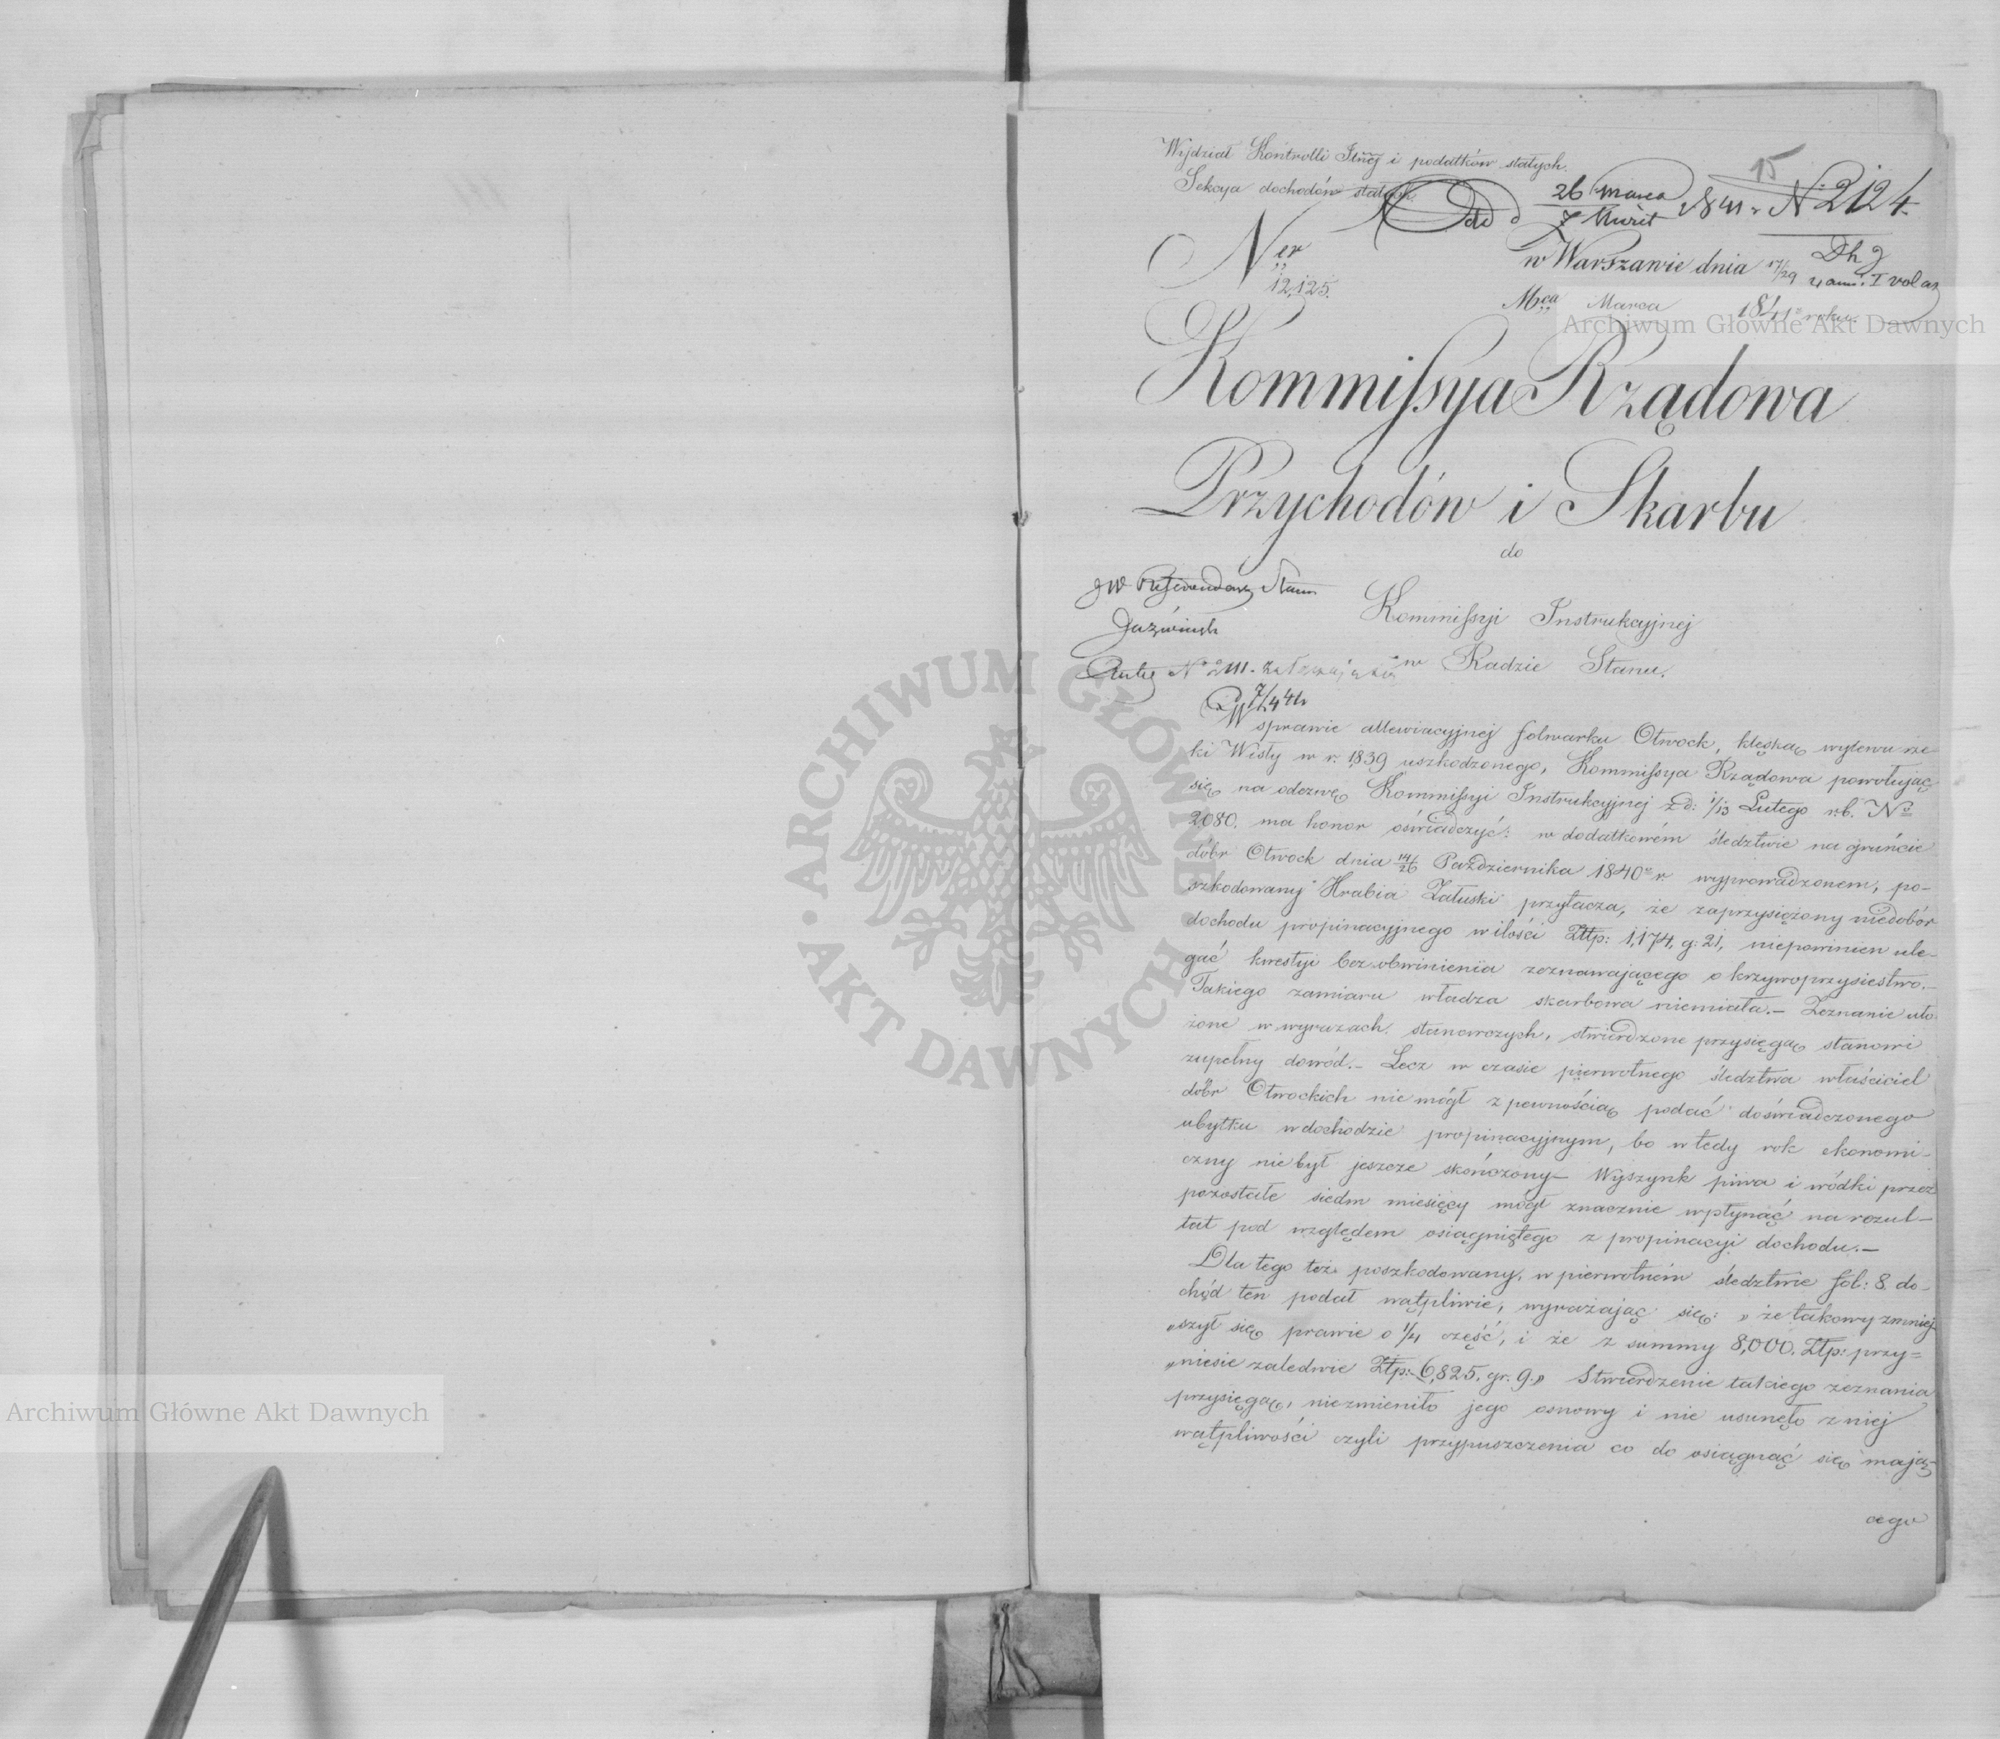 Wydział Kontrolli Jlnej i podatków stałych.
Sekcya dochodów stałych.
15
26 Marca
7 1841 r. N. 2124.
Ner
12,125.
w Warszawie dnia 17/29
Mca Marca 1841 roku.
Archiwum Główne Akt Dawnych
Kommissya Rządowa
Przychodów i Skarbu
do
JW Referendarz Stanu
Kommissyi Instrukcyjnej
w Radzie Stanu.
7/4 41
W sprawie allewiacyjnej folwarku Otwock, klęską wylewu rze-
ki Wisły w r. 1839 uszkodzonego, Kommissya Rządowa powołując
się na odezwę Kommissyi Instrukcyjnej z d: 1/13 Lutego r.b. No
2080. ma honor oświadczyć: w dodatkowém śledztwie na gruńcie
dóbr Otwock dnia 14/26 Października 1840 r. wyprowadzonem, po-
szkodowany Hrabia Załuski przytacza, że zaprzysiężony niedobór
dochodu propinacyjnego w ilości Złtp: 1,174, g: 21, niepowinien ule-
gać kwestyi bez obwinienia zeznawającego o krzywoprzysiestwo.-
Takiego zamiaru władza skarbowa niemiała.- Zeznanie uło-
żone w wyrazach stanowczych, stwierdzone przysięgą stanowi
zupełny dowód.- Lecz w czasie pierwotnego śledztwa właściciel
dóbr Otwockich nie mógł z pewnością podać doświadczonego
ubytku w dochodzie propinacyjnym, bo wtedy rok ekonomi-
czny nie był jeszcze skończony- Wyszynk piwa i wódki przez
pozostałe siedm miesięcy mógł znacznie wpłynąć na rezul-
tat pod względem osiągniętego z propinacyi dochodu.-
Dla tego też poszkodowany, w pierwotném śledztwie fol: 8 do-
chód ten podał wątpliwie, wyrażając się: „że takowy zmniej-
„szył się prawie o 1/4 część, i że z summy 8,000. Złp: przy=
„niesie zaledwie Złp: 6,825. gr. 9.” Stwierdzenie takiego zeznania
przysięgą, niezmieniło jego osnowy i nie usunęło z niej
wątpliwości czyli przypuszczenia co do osiągnąć się mają-
cego
Archiwum Główne Akt Dawnych
ARCHIWUM GŁÓWNE • AKT DAWNYCH •